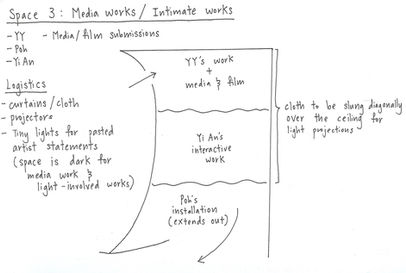 Space 3: Media works / Intimate works
- YY - Media/film submissions
- Poh
- Yi An
Logistics
- curtains/cloth
- projectors
- Tiny lights for pasted
artist statements
(space is dark for
media work &
light-involved works)
YY's work
+
media & film
Yi An's
interactive
work
Poh's
installation
(extends out)
cloth to be slung diagonally
over the ceiling for
light projections